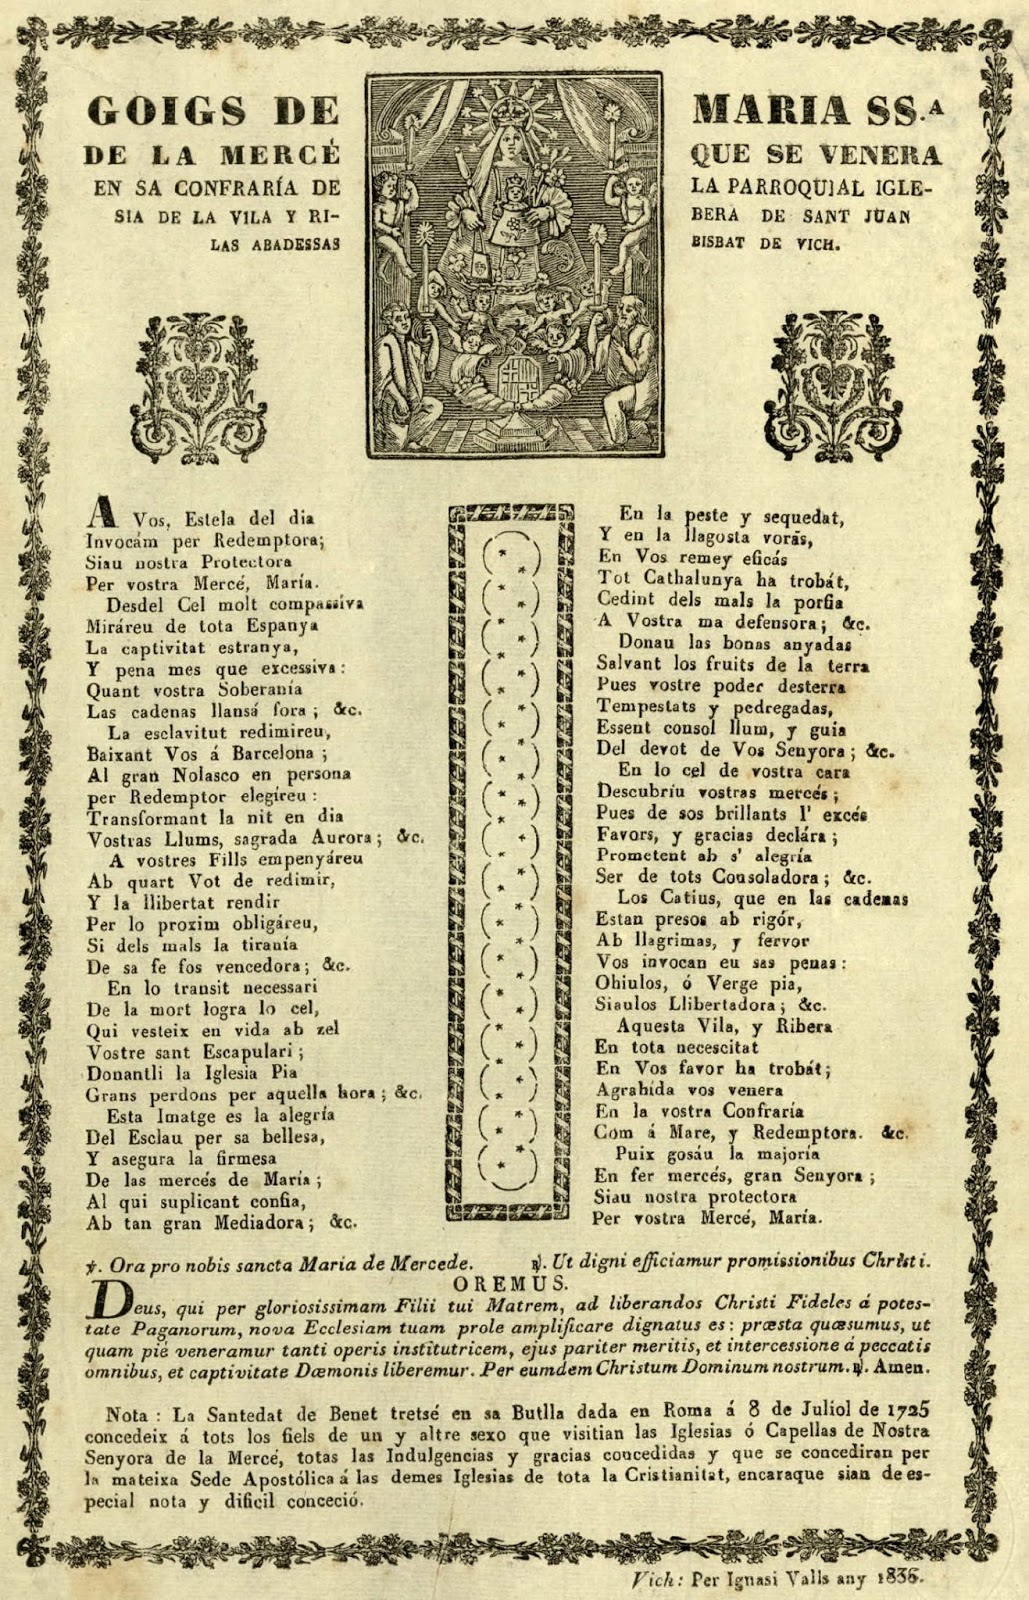 GOIGS DE MARIA SS.A
DE LA MERCÉ QUE SE VENERA
EN SA CONFRARÍA DE LA PARROQUIAL IGLE-
SIA DE LA VILA Y RI- BERA DE SANT JUAN
LAS ABADESSAS BISBAT DE VICH.
A Vos, Estela del dia
Invocám per Redemptora;
Siau nostra Protectora
Per vostra Mercé, María.
Desdel Cel molt compassiva
Miráreu de tota Espanya
La captivitat estranya,
Y pena mes que excessiva:
Quant vostra Soberanía
Las cadenas llansá fora; &c.
La esclavitut redimireu,
Baixant Vos á Barcelona;
Al gran Nolasco en persona
per Redemptor elegíreu:
Transformant la nit en dia
Vostras Llums, sagrada Aurora; &c.
A vostres Fills empenyáreu
Ab quart Vot de redimir,
Y la llibertat rendir
Per lo proxim obligáreu,
Si dels mals la tiranía
De sa fe fos vencedora; &c.
En lo transit necessari
De la mort logra lo cel,
Qui vesteix en vida ab zel
Vostre sant Escapulari;
Donantli la Iglesia Pia
Grans perdons per aquella hora; &c.
Esta Imatge es la alegría
Del Esclau per sa bellesa,
Y asegura la firmesa
De las mercés de María;
Al qui suplicant confia,
Ab tan gran Mediadora; &c.
En la peste y sequedat,
Y en la llagosta vorás,
En Vos remey eficás
Tot Cathalunya ha trobát,
Cedint dels mals la porfia
A Vostra ma defensora; &c.
Donau las bonas anyadas
Salvant los fruits de la terra
Pues vostre poder desterra
Tempestats y pedregadas,
Essent consol llum, y guia
Del devot de Vos Senyora; &c.
En lo cel de vostra cara
Descubriu vostras mercés;
Pues de sos brillants l' excés
Favors, y gracias declára;
Prometent ab s' alegría
Ser de tots Consoladora; &c.
Los Catius, que en las cadenas
Estan presos ab rigór,
Ab llagrimas, y fervor
Vos invocan eu sas penas:
Ohiulos, ó Verge pia,
Siaulos Llibertadora; &c.
Aquesta Vila, y Ribera
En tota necescitat
En Vos favor ha trobát;
Agrahida vos venera
En la vostra Confraría
Com á Mare, y Redemptora. &c.
Puix gosáu la majoría
En fer mercés, gran Senyora;
Siau nostra protectora
Per vostra Mercé, María.
℣. Ora pro nobis sancta Maria de Mercede. ℟. Ut digni efficiamur promissionibus Christi.
OREMUS.
Deus, qui per gloriosissimam Filii tui Matrem, ad liberandos Christi Fideles á potes-
tate Paganorum, nova Ecclesiam tuam prole amplificare dignatus es: præsta quæsumus, ut
quam pié veneramur tanti operis institutricem, ejus pariter meritis, et intercessione á peccatis
omnibus, et captivitate Dæmonis liberemur. Per eumdem Christum Dominum nostrum. ℟. Amen.
Nota: La Santedat de Benet tretsé en sa Butlla dada en Roma á 8 de Juliol de 1725
concedeix á tots los fiels de un y altre sexo que visitian las Iglesias ó Capellas de Nostra
Senyora de la Mercé, totas las Indulgencias y gracias concedidas y que se concediran per
la mateixa Sede Apostólica á las demes Iglesias de tota la Cristianitat, encaraque sian de es-
pecial nota y dificil conceció.
Vich: Per Ignasi Valls any 1836.